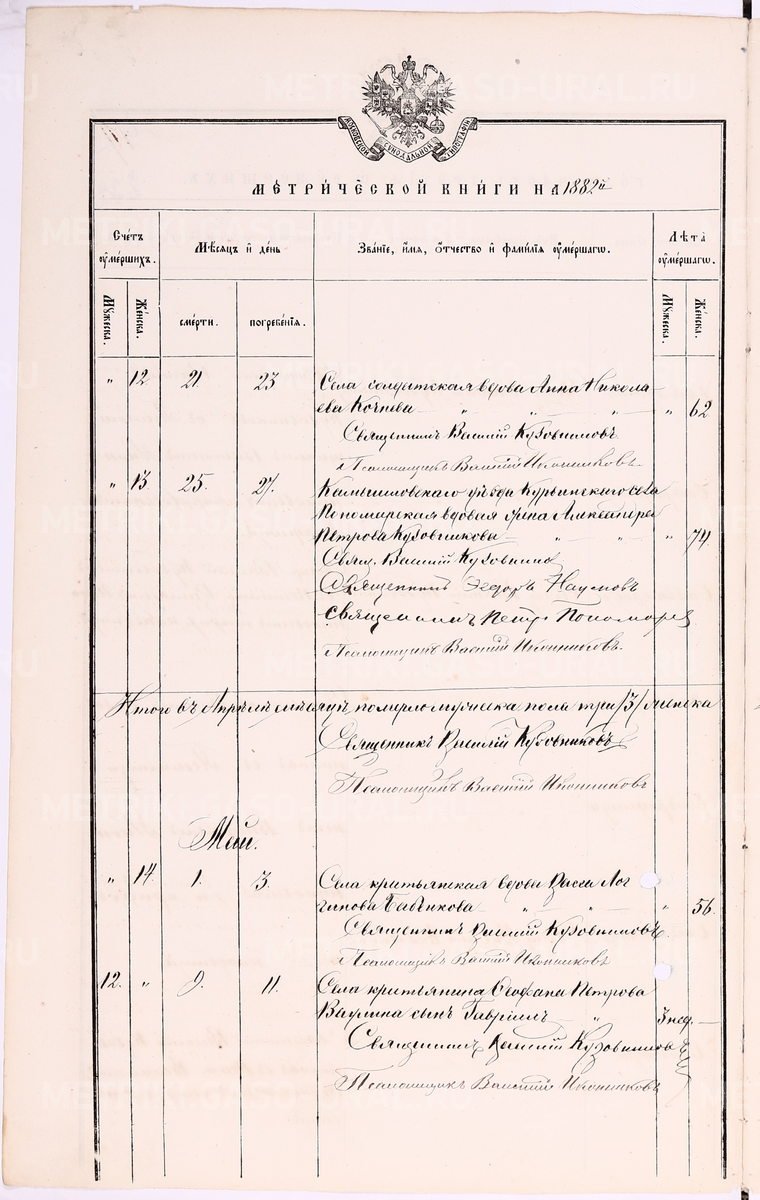 МОСКОВСКОЙ СѴНОДАЛЬНОЙ ТИПОГРАФІИ
МЕТРИ́ЧЕСКОЙ КНИ́ГИ НА 1882й
Сче́тъ ᲂу҆ме́ршихъ.
Мѣ́сяцъ и҆ де́нь
Зва́ніе, и҆́мя, ѻ҆́тчество и҆ фами́лія ᲂу҆ме́ршагѡ.
Лѣ́та ᲂу҆ме́ршагѡ.
Мꙋ́жеска.
Же́нска.
сме́рти.
погребе́нія.
Мꙋ́жеска.
Же́нска.
" 12 21. 23 Села солдатская вдова Анна Никола-
ева Кочнева " " " " 62
Священникъ Василій Кузовниковъ
Псаломщикъ Василій Иконниковъ.
" 13 25. 27. Камышловскаго уѣзда Курьинскаго села
Пономарская вдовая
Петрова Кузовникова " " " 74
Свящ. Василій Кузовник
Священникъ Ѳеодоръ Наумовъ
Священникъ Петръ Пономарев
Псаломщикъ Василій Иконниковъ.
Итого въ Апрѣлѣ мѣсяцѣ померло мужеска пола три /3/ женска
Священникъ Василій Кузовниковъ
Псаломщикъ Василій Иконниковъ
Май.
" 14 1. 3. Села крестьянская вдова Васса Лог-
гинова Бабикова " " " 56.
Священникъ Василій Кузовниковъ.
Псаломщикъ Василій Иконниковъ
12. " 9. 11. Села крестьянина Ѳеофана Петрова
Ваулина сынъ Гавріилъ " 3 нед. —
Священникъ Василій Кузовников
Псаломщикъ Василій Иконниковъ